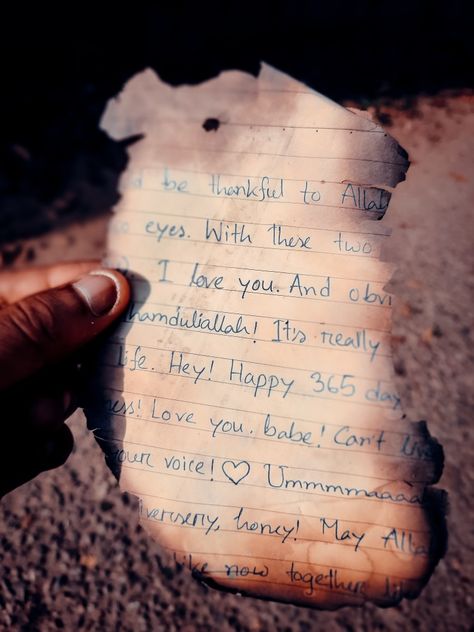 be thankful to Allah
eyes. With these two
I love you. And obvi
hamduliallah! It's really
life. Hey! Happy 365 day
ness! Love you. babe! Can't live
your voice! ♡ Ummmmaaaa
iversery, honey! May Alla
like now together